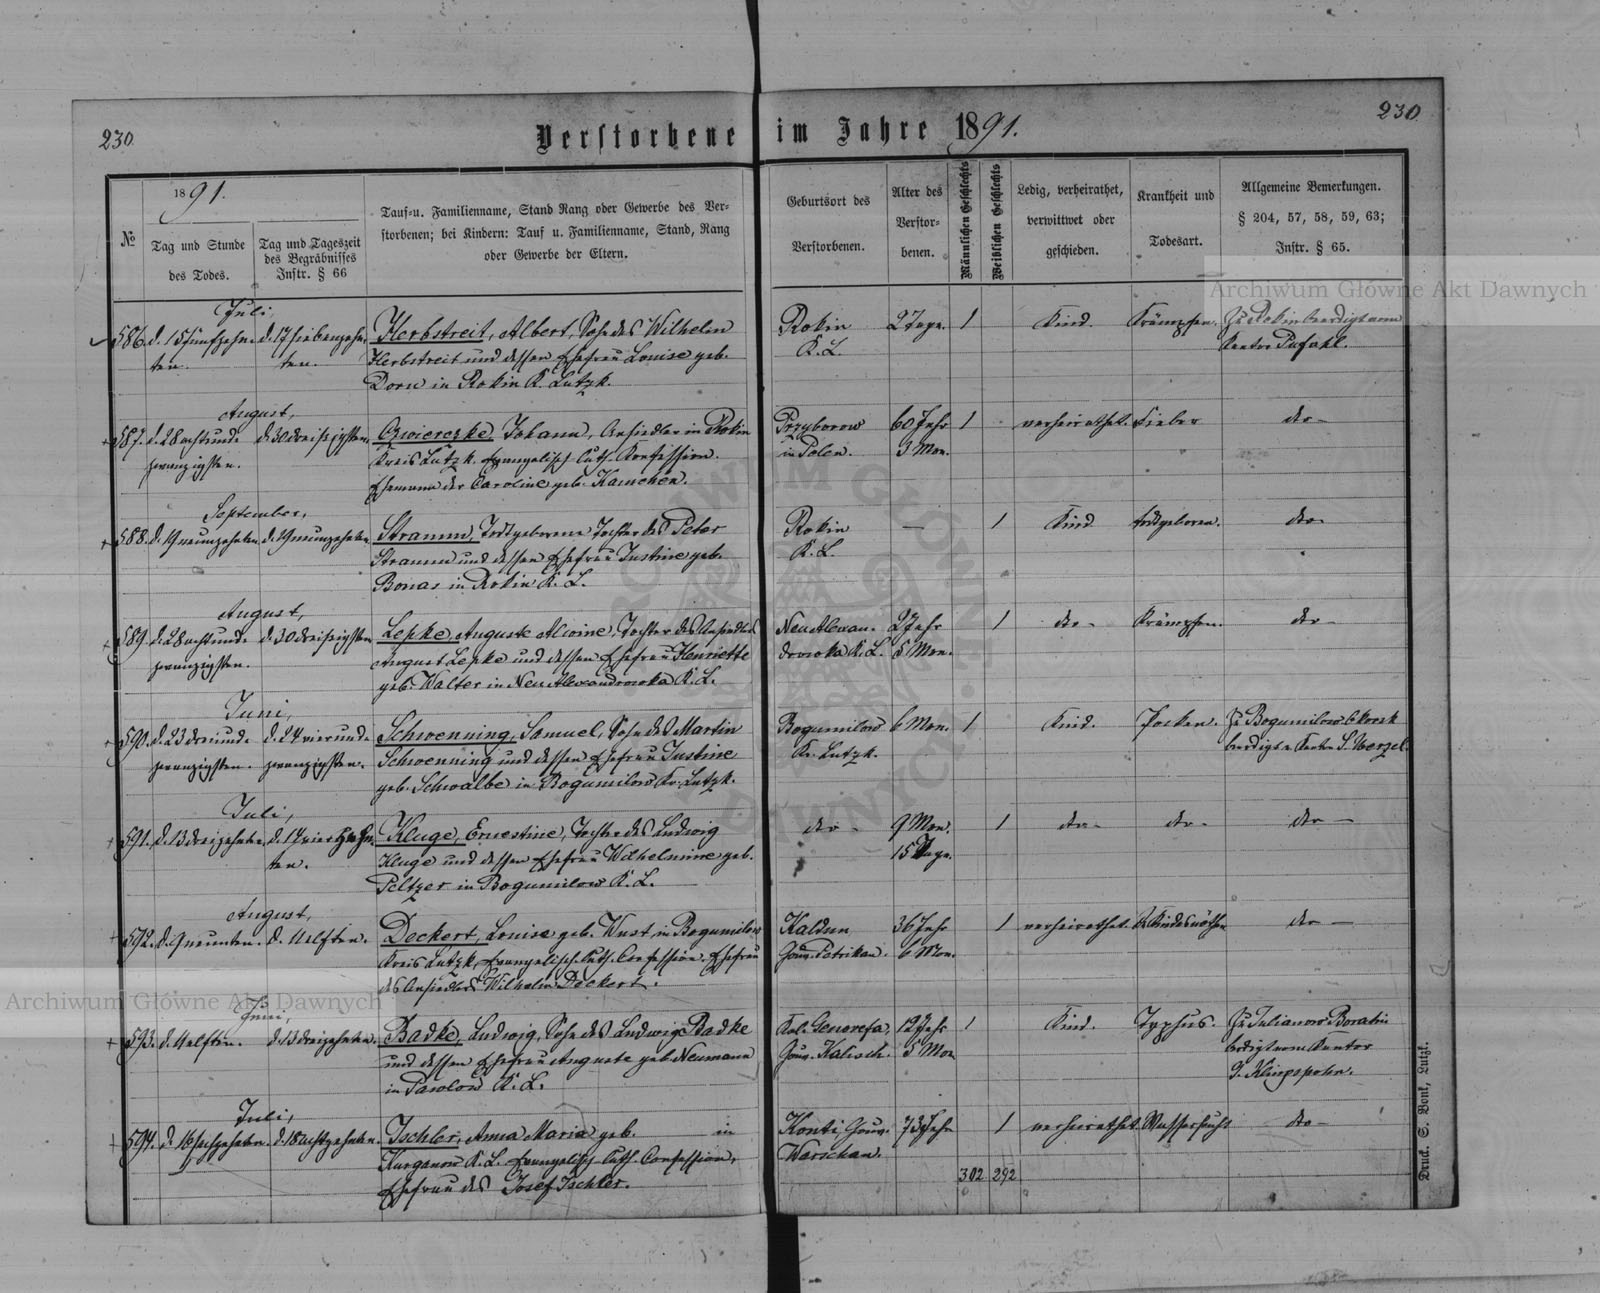 230
230
Verstorbene im Jahre 1891.
№
1891.
Tag und Stunde
des Todes.
Tag und Tageszeit
des Begräbnisses
Instr. § 66
Tauf-u. Familienname, Stand Rang oder Gewerbe des Ver-
storbenen; bei Kindern: Tauf u. Familienname, Stand, Rang
oder Gewerbe der Eltern.
Geburtsort des
Verstorbenen.
Alter des
Verstor-
benen.
Männlichen Geschlechts
Weiblichen Geschlechts
Ledig, verheirathet,
verwittwet oder
geschieden.
Krankheit und
Todesart.
Allgemeine Bemerkungen.
§ 204, 57, 58, 59, 63;
Instr. § 65.
Archiwum Główne Akt Dawnych
Juli,
586. d. 15 fünfzehn- d. 17 siebenzehn- Herbstreit, Albert, Sohn des Wilhelm Rokin 2 Tage. 1 Kind. Krämpfen. Zu Rokin beerdigt vom
ten. ten. Herbstreit und dessen Ehefrau Louise geb. K. L. Kantor Pufahl.
Dorn in Rokin K. Lutzk.
August,
587. d. 28 achtund- d. 30 dreißigsten. Czwierczke, Johann, Ansiedler in Rokin Przyborow 60 Jahr 1 verheirathet. Fieber dto-
zwanzigsten. Kreis Lutzk. Evangelisch-Luth. Konfession. in Polen. 3 Mon.
Ehemann der Caroline geb. Kamchen.
September,
588. d. 19 neunzehnten. d. 19 neunzehnten. Stramm, Todtgeborene Tochter des Peter Rokin — 1 Kind todtgeboren. dto-
Stramm und dessen Ehefrau Justine geb. K. L.
Bonas in Rokin K. L.
August,
589. d. 28 achtund- d. 30 dreißigsten. Lepke, Auguste Alwine, Tochter des Ansiedlers Neu Alexan- 2 Jahr 1 dto- Krämpfen. dto-
zwanzigsten. August Lepke und dessen Ehefrau Henriette drowka K. L. 5 Mon.
geb. Walter in Neu Alexandrowka K. L.
Juni,
590. d. 23 dreiund- d. 24 vierund- Schwenning, Samuel, Sohn des Martin Bogumilow 6 Mon. 1 Kind. Pocken. Zu Bogumilow
zwanzigsten. zwanzigsten. Schwenning und dessen Ehefrau Justine Kr. Lutzk. beerdigt v. Kantor
geb. Schwalbe in Bogumilow Kr. Lutzk.
Juli,
591. d. 13 dreizehnten. d. 14 vierzehn- Kluge, Ernestine, Tochter des Ludwig dto- 9 Mon. 1 dto- dto- dto-
ten. Kluge und dessen Ehefrau Wilhelmine geb. 15 Tage.
Peltzer in Bogumilow K. L.
August,
592. d. 9 neunten. d. 11 elften. Deckert, Louise geb. Wust in Bogumilow Kaldun 36 Jahr 1 verheirathet. Kindesnöthen dto-
Kreis Lutzk, Evangelisch-Luth. Confession. Ehefrau Gouv. Petrikau. 6 Mon.
des Ansiedlers Wilhelm Deckert.
Archiwum Główne Akt Dawnych
Juni,
593. d. 11 elften. d. 13 dreizehnten. Badke, Ludwig, Sohn des Ludwig Badke Kol. Genorefa, 12 Jahr 1 Kind. Typhus. Zu Julianow Boratin
und dessen Ehefrau Auguste geb. Neumann Gouv. Kalisch. 5 Mon. vom Kantor
in Pawlow K. L. Klingspohn.
Juli,
594. d. 16 sechzehnten. d. 18 achtzehnten. Tschler, Anna Maria geb. in Konti, Gouv. 73 Jahr 1 verheirathet Wassersucht dto-
Kurganow K. L. Evangelisch-Luth. Confession, Warschau.
Ehefrau des Josef Tschler.
302 292
Druck. S. Bonk, Lutzk.